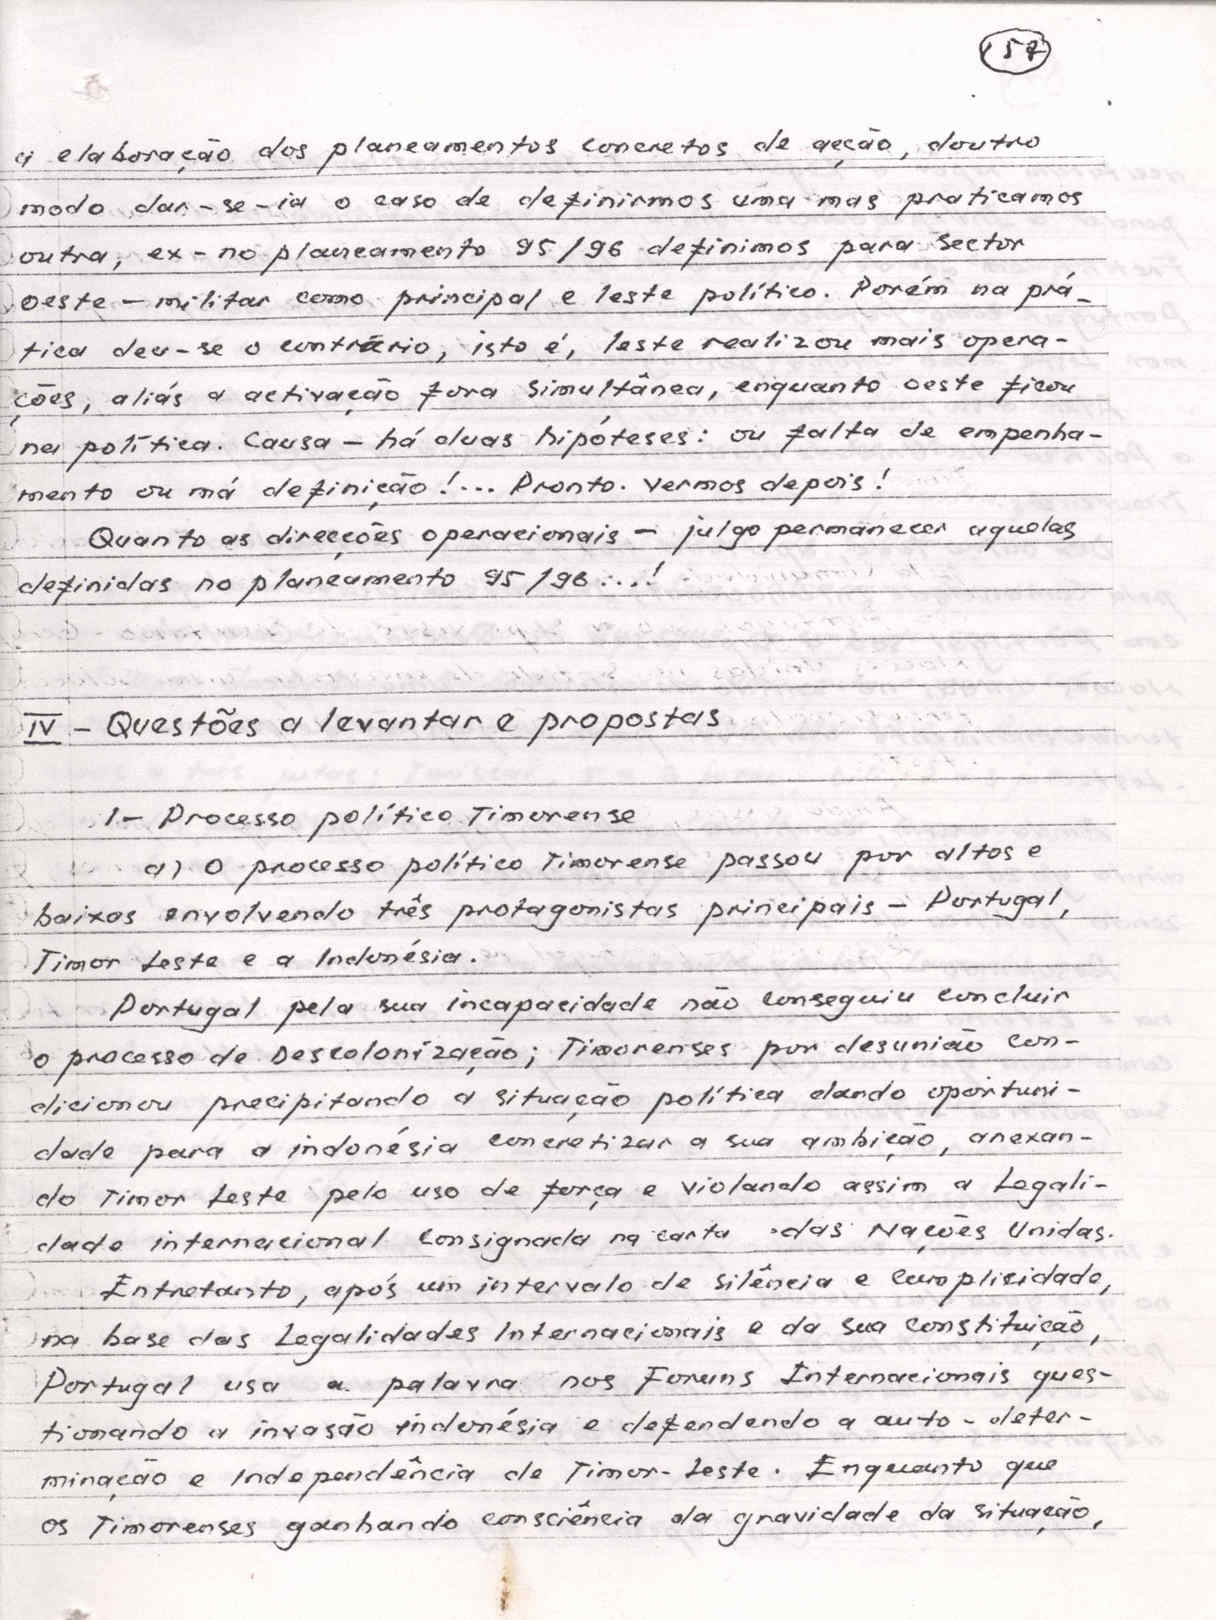 157
a elaboração dos planeamentos concretos de acção, doutro
modo dar-se-ia o caso de definirmos uma mas praticamos
outra, ex-no planeamento 95/96 definimos para sector
oeste - militar como principal e leste político. Porém na prá-
tica deu-se o contrário, isto é, leste realizou mais opera-
ções, aliás a activação fora simultânea, enquanto oeste ficou
na política. Causa - há duas hipóteses: ou falta de empenha-
mento ou má definição!... Pronto. Vermos depois!
Quanto as direcções operacionais - julgo permanecer aquelas
definidas no planeamento 95/96...!
IV - Questões a levantar e propostas
1- Processo político Timorense
a) O processo político Timorense passou por altos e
baixos envolvendo três protagonistas principais - Portugal,
Timor Leste e a Indonésia.
Portugal pela sua incapacidade não conseguiu concluir
o processo de Descolonização; Timorenses por desunião con-
dicionou precipitando a situação política dando oportuni-
dade para a indonésia concretizar a sua ambição, anexan-
do Timor Leste pelo uso de força e violando assim a Legali-
dade internacional consignada na carta das Nações Unidas.
Entretanto, após um intervalo de silência e cumplicidade,
na base das Legalidades Internacionais e da sua constituição,
Portugal usa a palavra nos Foruns Internacionais ques-
tionando a invasão indonésia e defendendo a auto-deter-
minação e Independência de Timor-Leste. Enquanto que
os Timorenses ganhando consciência da gravidade da situação,